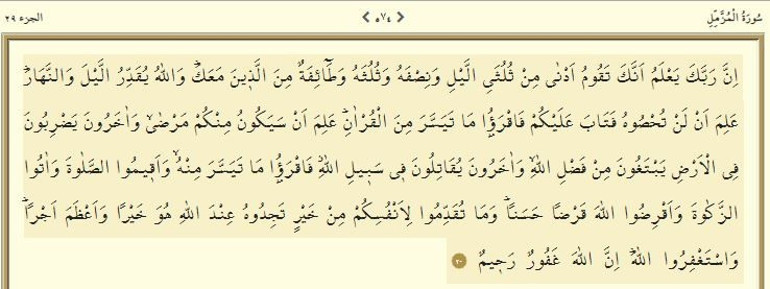 سُورَةُ الْمُزَّمِّلِ ٥٧٤ الجزء ٢٩
اِنَّ رَبَّكَ يَعْلَمُ اَنَّكَ تَقُومُ اَدْنٰى مِنْ ثُلُثَيِ الَّيْلِ وَنِصْفَهُ وَثُلُثَهُ وَطَٓائِفَةٌ مِنَ الَّذ۪ينَ مَعَكَۜ وَاللّٰهُ يُقَدِّرُ الَّيْلَ وَالنَّهَارَۜ
عَلِمَ اَنْ لَنْ تُحْصُوهُ فَتَابَ عَلَيْكُمْ فَاقْرَؤُ۫ا مَا تَيَسَّرَ مِنَ الْقُرْاٰنِۜ عَلِمَ اَنْ سَيَكُونُ مِنْكُمْ مَرْضٰىۙ وَاٰخَرُونَ يَضْرِبُونَ
فِي الْاَرْضِ يَبْتَغُونَ مِنْ فَضْلِ اللّٰهِۙ وَاٰخَرُونَ يُقَاتِلُونَ ف۪ي سَب۪يلِ اللّٰهِۘ فَاقْرَؤُ۫ا مَا تَيَسَّرَ مِنْهُۙ وَاَق۪يمُوا الصَّلٰوةَ وَاٰتُوا
الزَّكٰوةَ وَاَقْرِضُوا اللّٰهَ قَرْضًا حَسَنًاۜ وَمَا تُقَدِّمُوا لِاَنْفُسِكُمْ مِنْ خَيْرٍ تَجِدُوهُ عِنْدَ اللّٰهِ هُوَ خَيْرًا وَاَعْظَمَ اَجْرًاۜ
وَاسْتَغْفِرُوا اللّٰهَۜ اِنَّ اللّٰهَ غَفُورٌ رَح۪يمٌ ٢٠